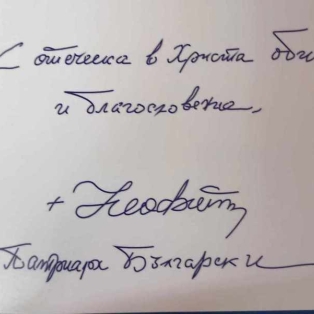 С отеческа в Христа оби
и благословение,
+ Неофит
Патриарх Български